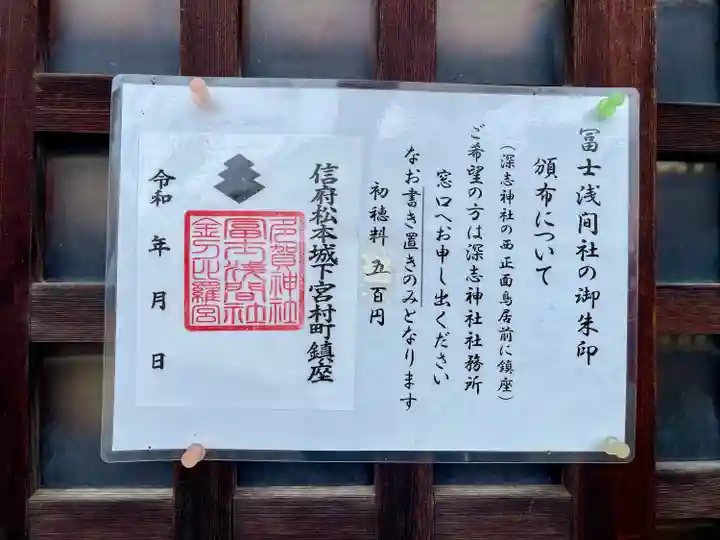 冨士浅间社の御朱印
頒布について
（深志神社の西正面鳥居前に鎮座）
ご希望の方は深志神社社務所
窓口へお申し出ください
なお書き置きのみとなります
初穂料 五百円
信府松本城下宮村町鎮座
多賀神社
冨士浅間社
金刀比羅宮
令和 年 月 日